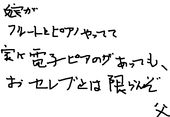 娘が
フルートとピアノやってて
家に電子ピアノがあっても、
おセレブとは限らんぞ
父